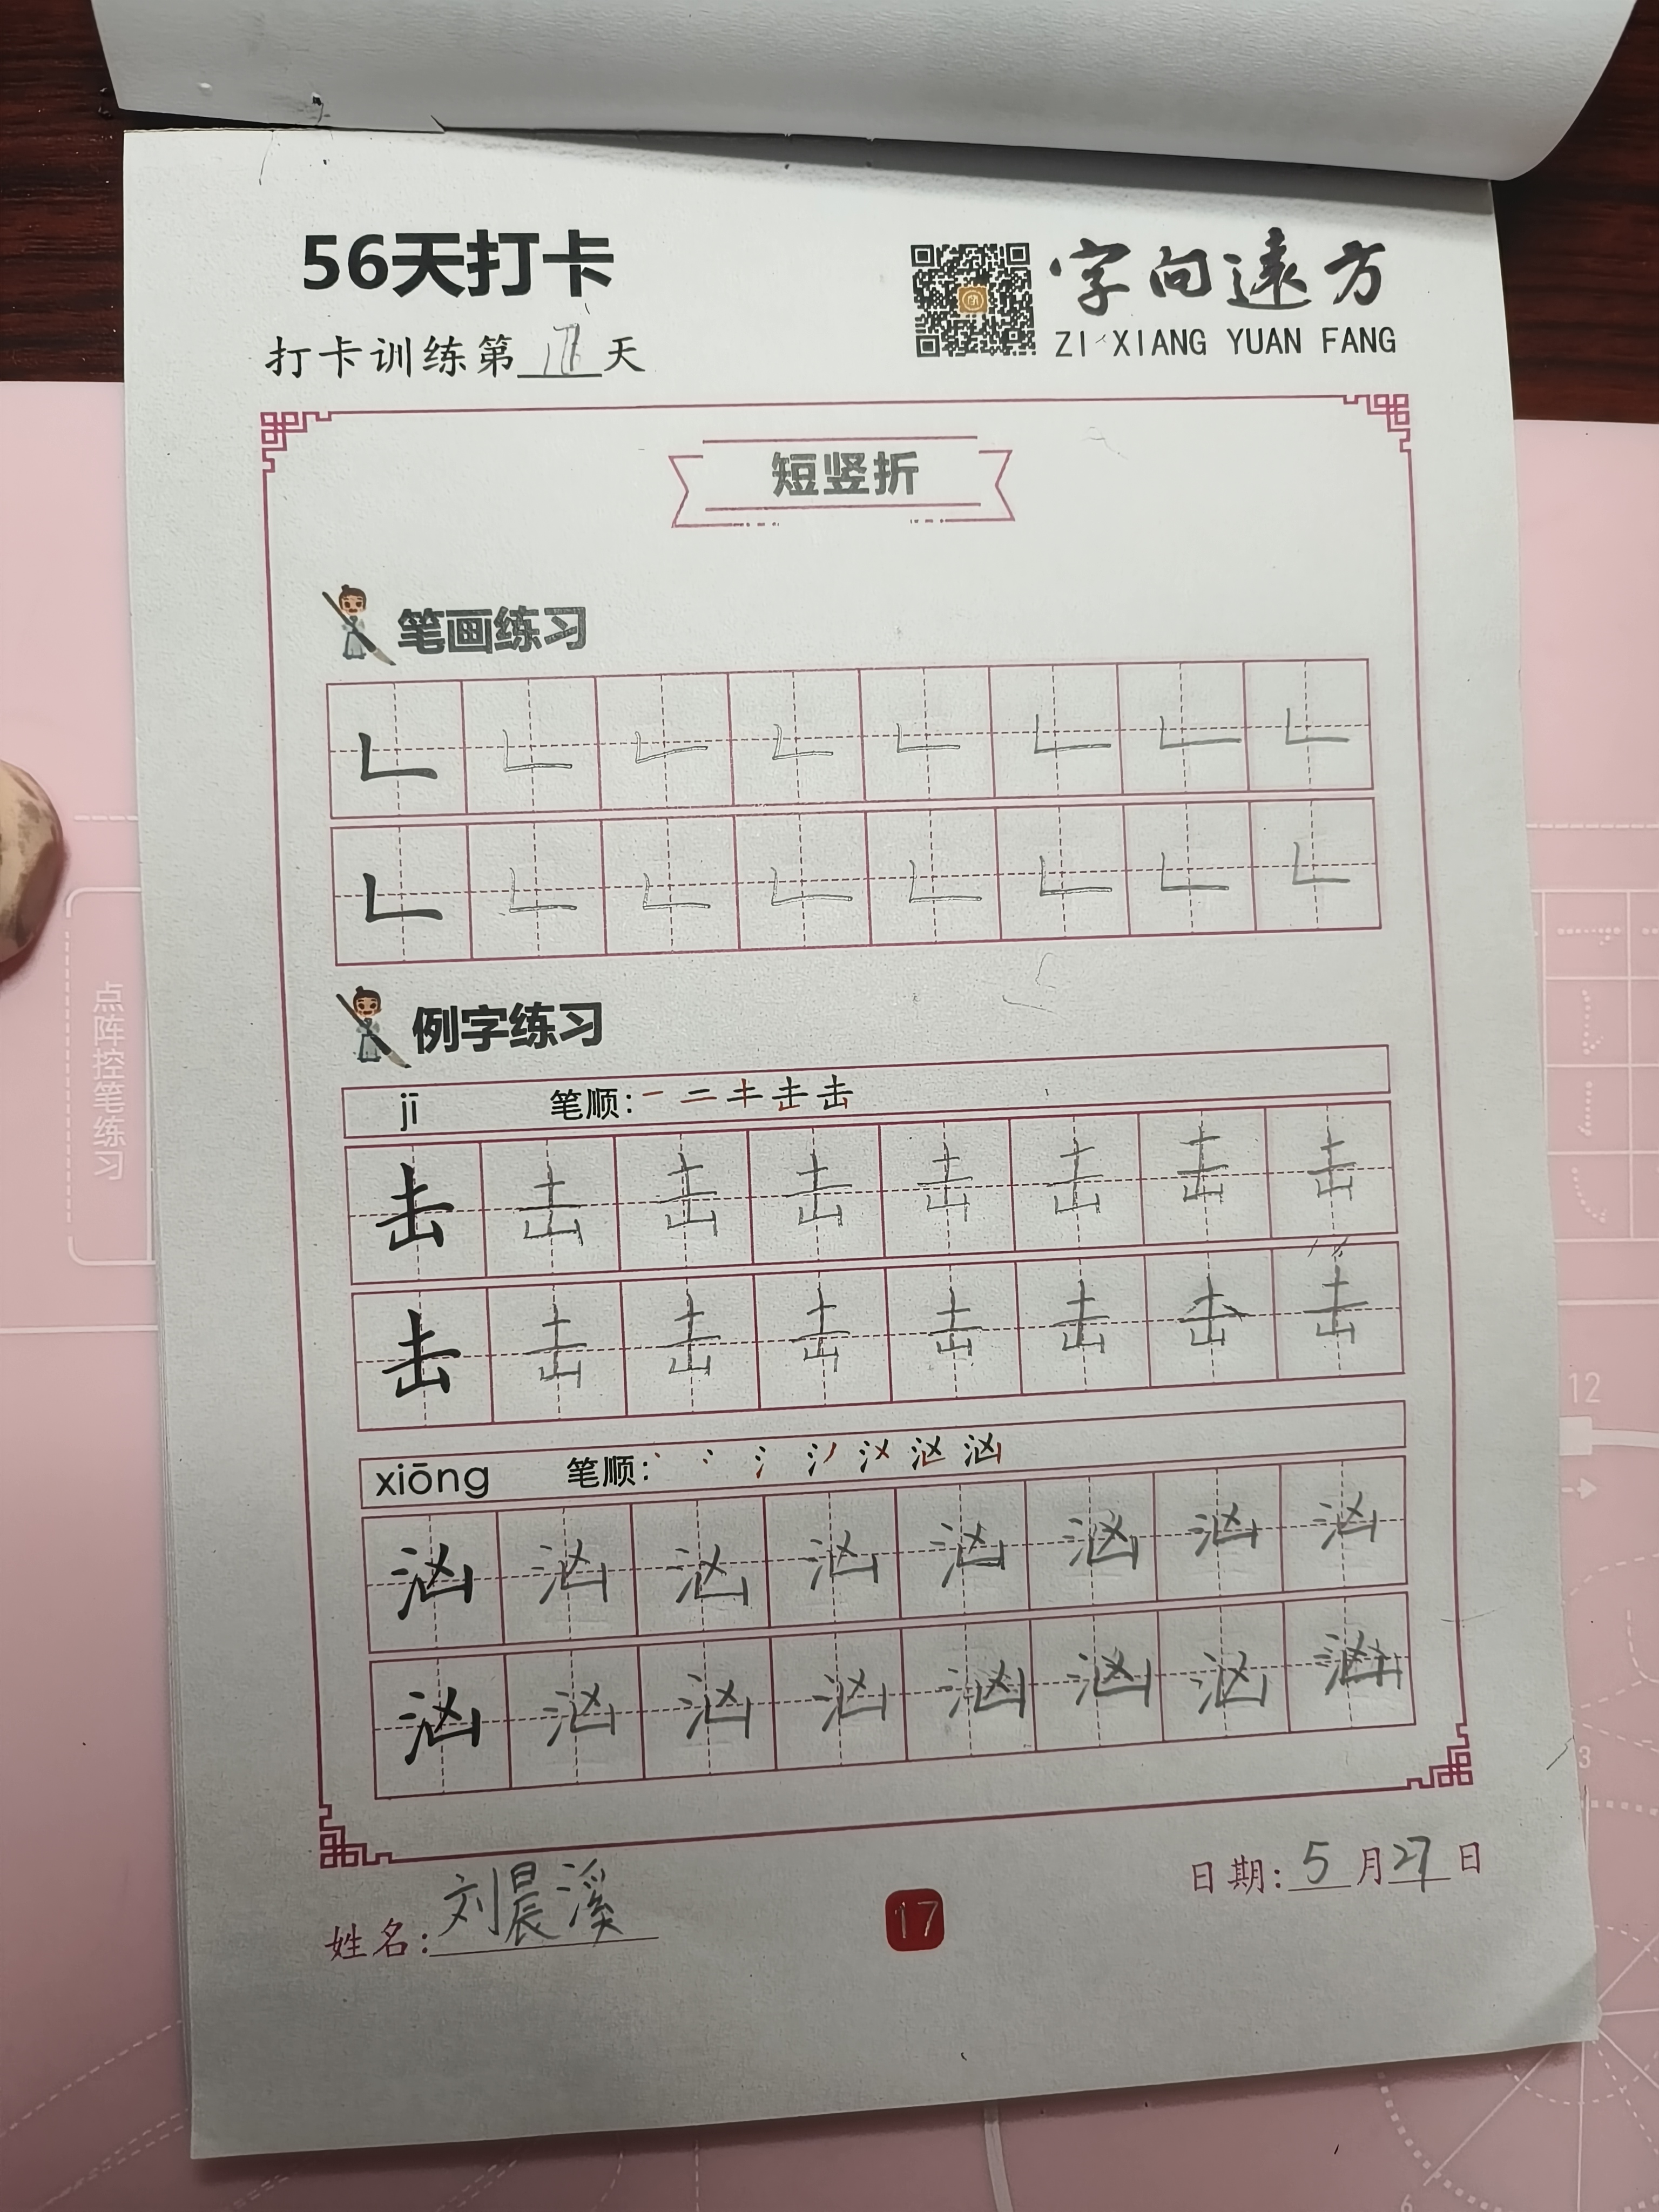 56天打卡
字向遠方
ZI XIANG YUAN FANG
打卡训练第17天
短竖折
笔画练习
𠃊 𠃊 𠃊 𠃊 𠃊 𠃊 𠃊 𠃊
𠃊 𠃊 𠃊 𠃊 𠃊 𠃊 𠃊 𠃊
例字练习
jī 笔顺: 一 二 キ 击 击
击 击 击 击 击 击 击 击
击 击 击 击 击 击 击 击
xiōng 笔顺:
汹 汹 汹 汹 汹 汹 汹 汹
汹 汹 汹 汹 汹 汹 汹 汹
姓名: 刘晨溪
17
日期: 5月27日
点阵控笔练习
12
3
6